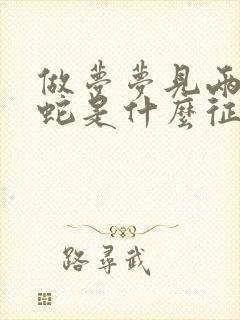 做夢夢見兩
蛇是什麼征
路尋武